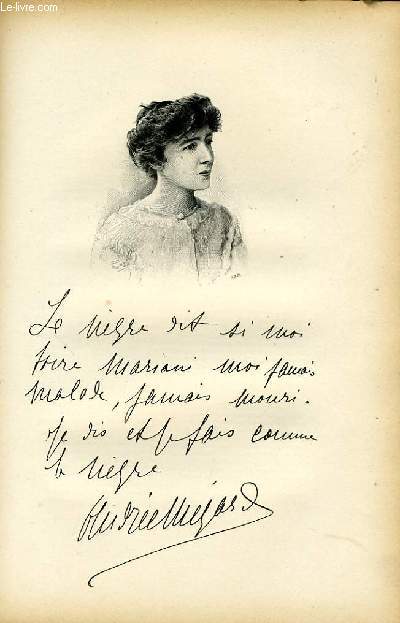 Le-livre.com
Le nègre dit si moi
boire Mariani moi jamais
malade, jamais mouri.
Je dis et je fais comme
le nègre
Andrée Mégard